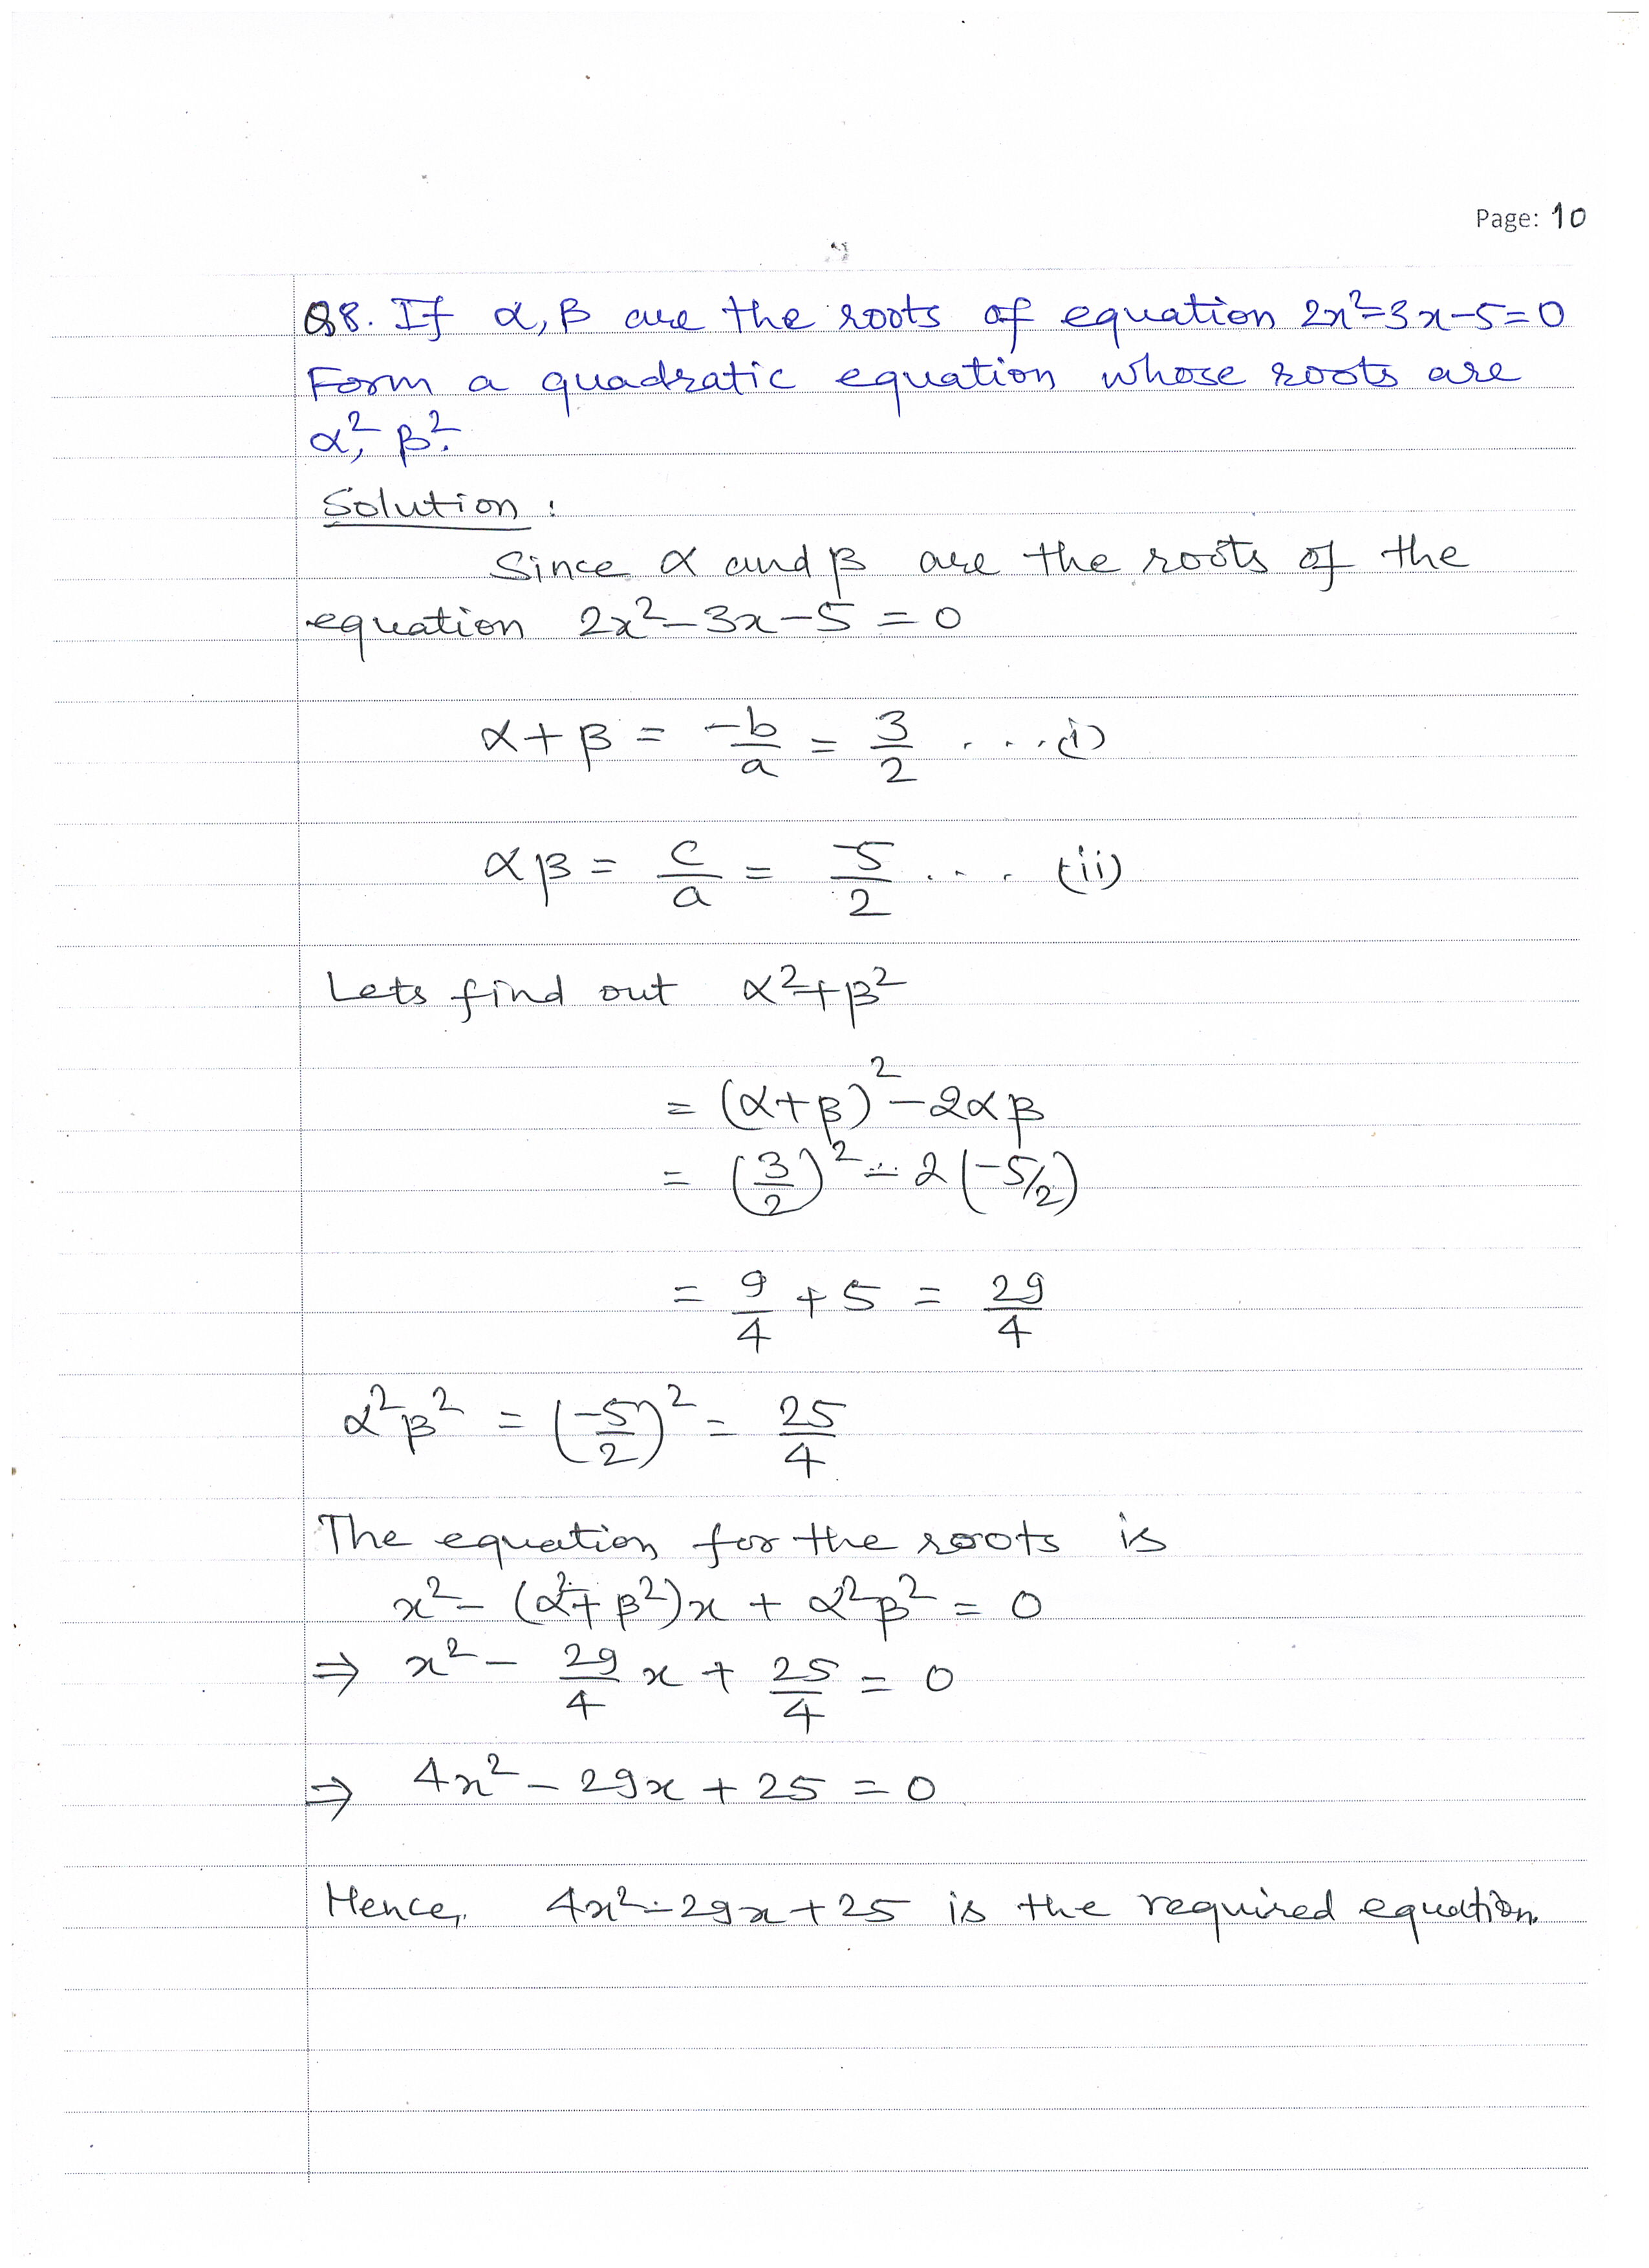 Page: 10
Q8. If α, β are the roots of equation 2x²-3x-5=0
Form a quadratic equation whose roots are
α², β².
Solution:
Since α and β are the roots of the
equation 2x²-3x-5=0
α+β = -b/a = 3/2 ....(i)
αβ = c/a = -5/2 .... (ii)
Lets find out α²+β²
= (α+β)²-2αβ
= (3/2)² - 2(-5/2)
= 9/4 + 5 = 29/4
α²β² = (-5/2)² = 25/4
The equation for the roots is
x² - (α²+β²)x + α²β² = 0
⇒ x² - 29/4 x + 25/4 = 0
⇒ 4x² - 29x + 25 = 0
Hence, 4x²-29x+25 is the required equation.